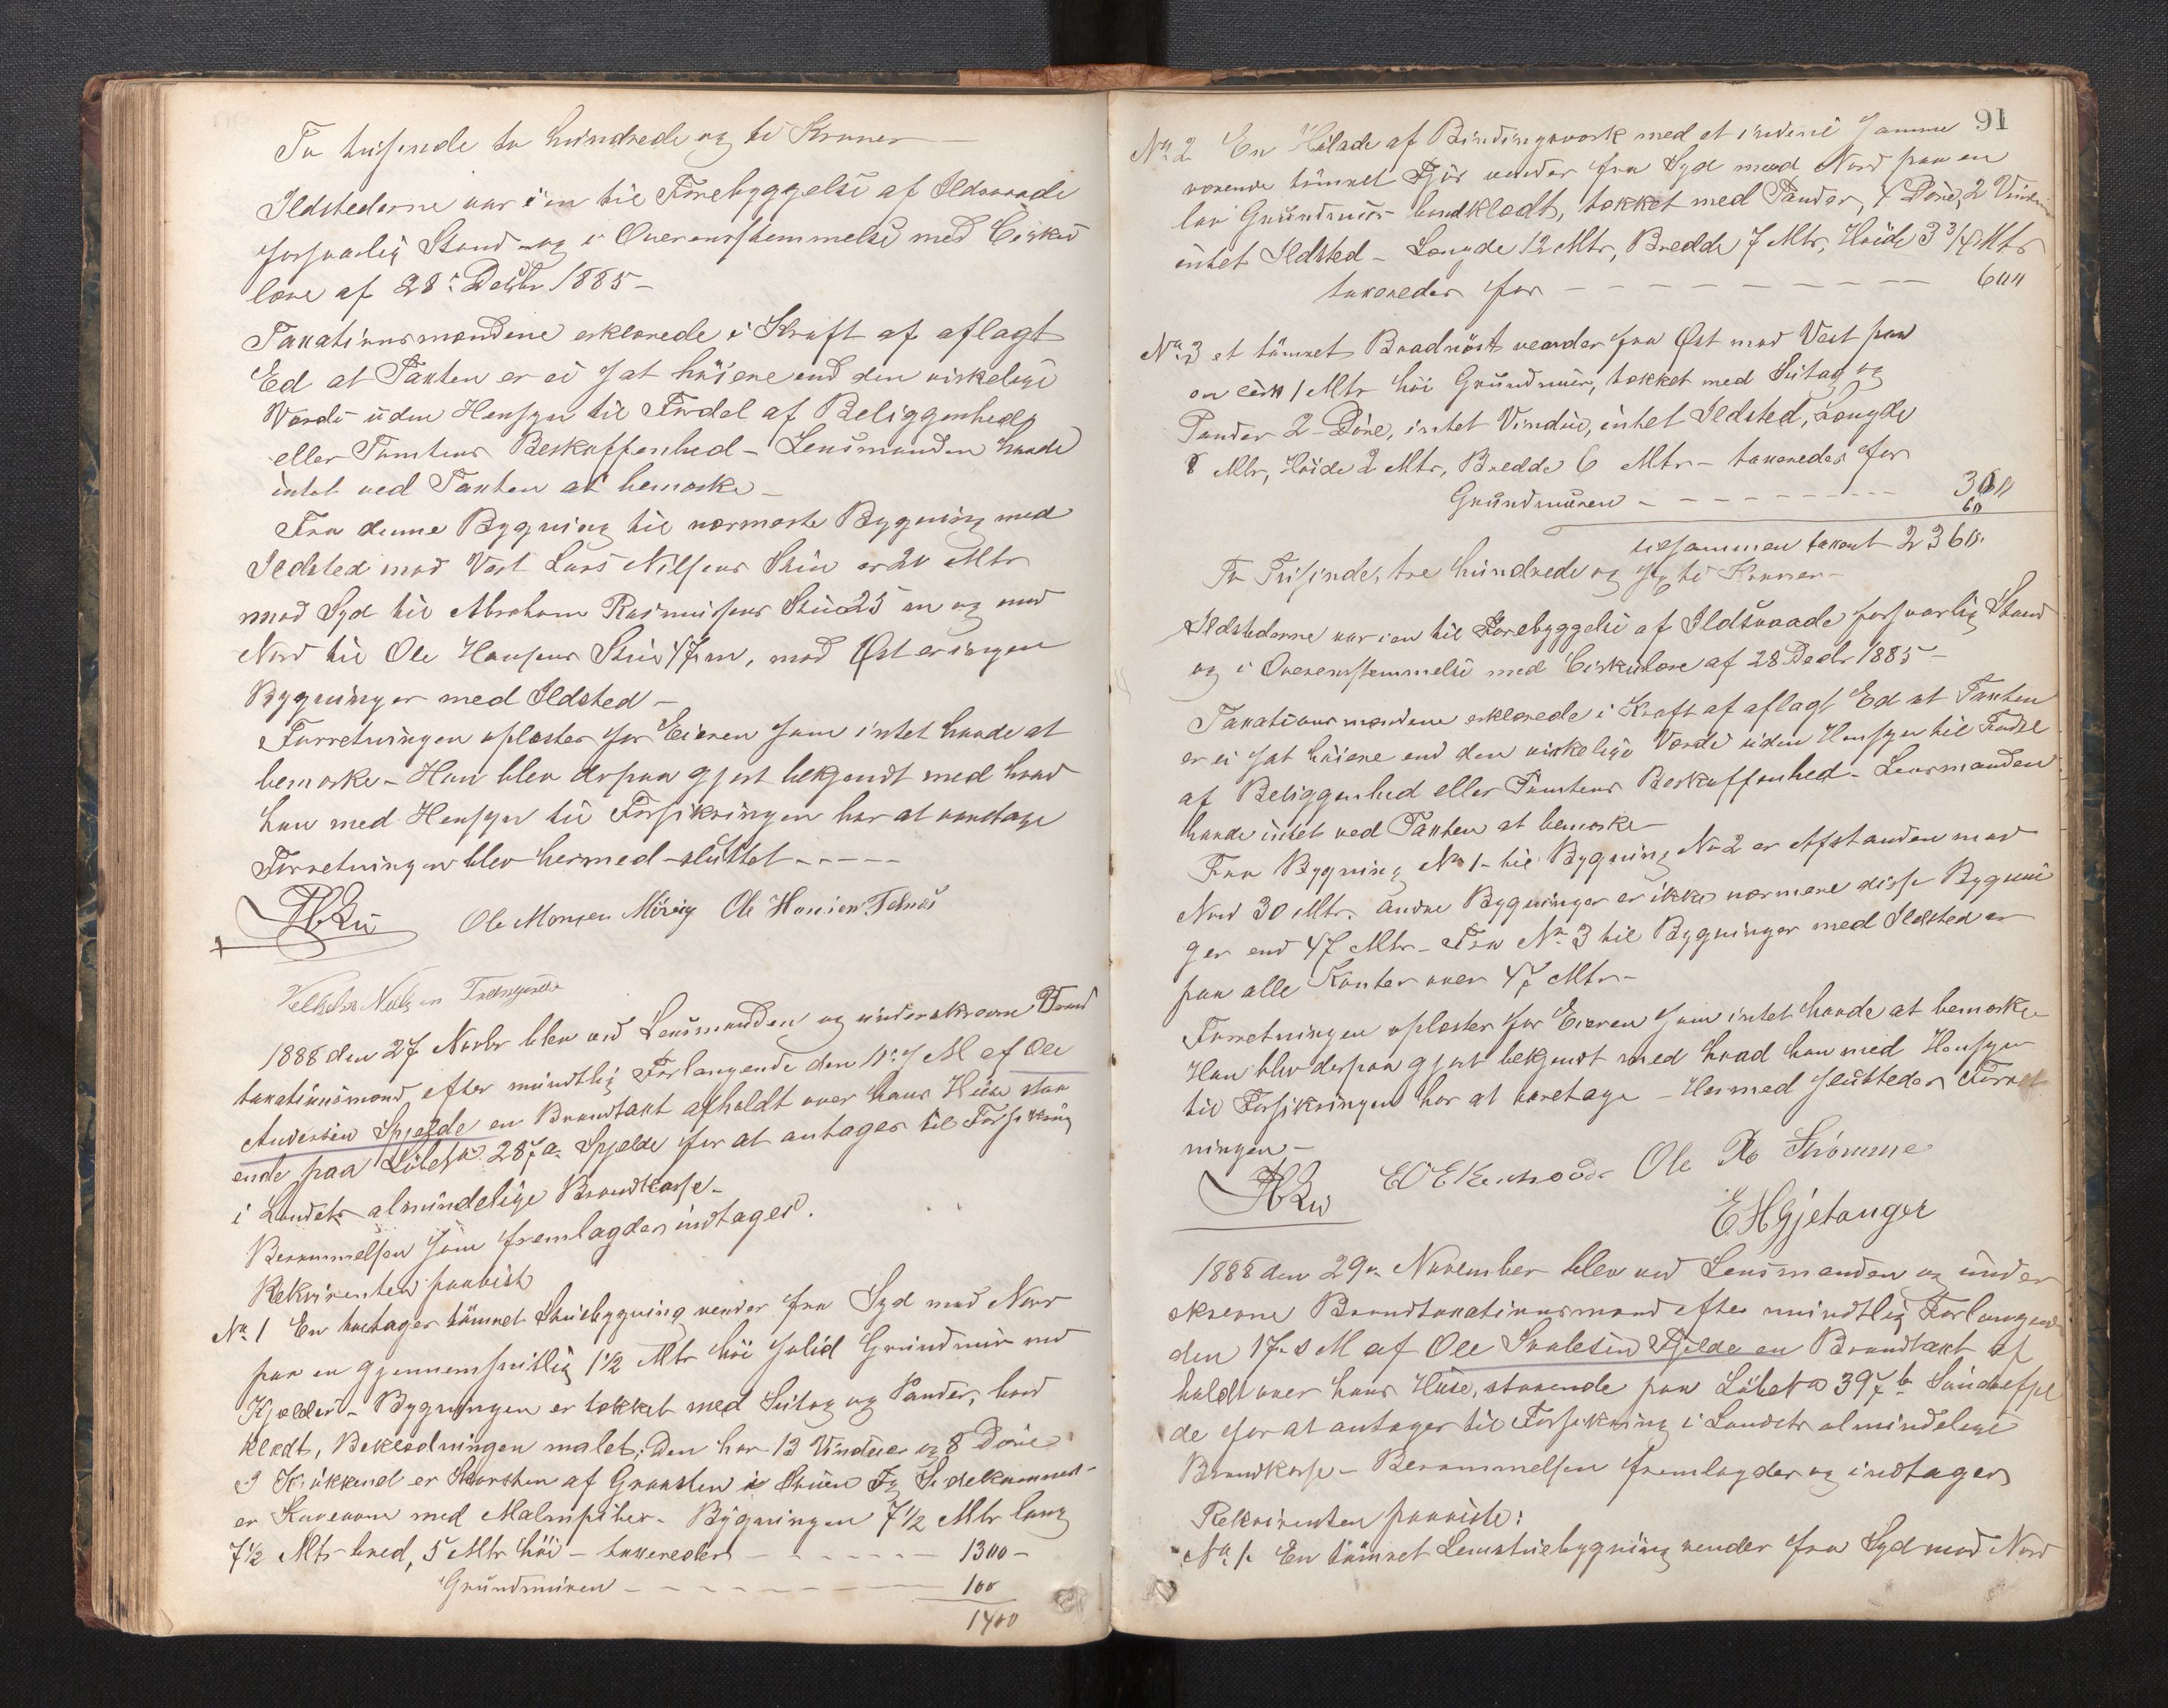 To tusinde to hundrede og ti Kroner
Ildstederne var i en til Forebyggelse af Ildsvaade
forsvarlig Stand og i Overensstemmelse med Cirku
lære af 28: Decbr 1885 –
Taxationsmændene erklærede i Kraft af aflagt
Ed at Taxten er ei sat høiere end den virkelige
Værdi uden Hensyn til Fordel af Beliggenhed
eller Tomtens Beskaffenhed – Lensmanden havde
intet ved Taxten at bemærke –
Fra denne Bygning til nærmeste Bygning med
Ildsted mod Vest Lars Nilsens Stue er 20 Mtr
mod Syd til Abraham Rasmussens Stue 25 m og mod
Nord til Ole Hansens Stue 47 m, mod Øst er ingen
Bygninger med Ildsted –
Forretningen oplæstes for Eieren som intet havde at
bemærke – Han blev derpaa gjort bekjendt med hvad
han med Hensyn til Forsikringen har at iagttage
Forretningen blev hermed sluttet
Ole Monsen Ole Hansen
1888 den 27 Novbr blev ved Lensmanden og underskrevne Brand
taxationsmænd efter mundtlig Forlangende den 10 d M af Ole
Andersen Spjelde en Brandtaxt afholdt over hans Huse staa
ende paa Løbe No 287 a Spjelde for at antages til Forsikring
i Landets almindelige Brandkasse –
Berammelsen som fremlagdes indtages.
Rekvirenten paaviste
No 1 En toetages tømret Stuebygning vender fra Syd mod Nord
paa en gjennemsnitlig 1 1/2 Mtr høi solid Grundmur med
Kjælder – Bygningen er tækket med Sutag og Pander, bord
klædt, Beklædningen malet. Den har 13 Vinduer og 8 Døre
I Kjøkkenet er Skorsten af Graasten i Stuen og Sidekammer
er Kakkelovn med Malmpiber – Bygningen 7 1/2 Mtr lang
7 1/2 Mtr bred, 5 Mtr høi – taxeredes 1300 –
Grundmuren 100
1400
91
No 2 En Hølade af Bindingsværk med et indeni samme
værende tømret Fjøs vender fra Syd mod Nord paa en
lav Grundmur bordklædt, tækket med Pander, 4 Døre, 2 Vinduer
intet Ildsted – Længde 12 Mtr, Bredde 7 Mtr, Høide 3 3/4 Mtr
taxeredes for 600
No 3 et tømret Baadnøst vender fra Øst mod Vest paa
en cirk 1 Mtr høi Grundmur, tækket med Sutag og
Pander 2 Døre, intet Vindue, intet Ildsted, Længde
8 Mtr, Høide 2 Mtr, Bredde 6 Mtr – taxeredes for 300
Grundmuren 60
tilsammen taxert 2360.
To Tusinde, tre hundrede og sexti Kroner –
Ildstederne var i en til Forebyggelse af Ildsvaade forsvarlig Stand
og i Overensstemmelse med Cirkulære af 28 Decbr 1885 –
Taxationsmændene erklærede i Kraft af aflagt Ed at Taxten
er ei sat høiere end den virkelige Værdi uden Hensyn til Fordel
af Beliggenhed eller Tomtens Beskaffenhed – Lensmanden
havde intet ved Taxten at bemærke –
Fra Bygning No 1 til Bygning No 2 er Afstanden mod
Nord 30 Mtr. andre Bygninger er ikke nærmere disse Bygnin
ger end 47 Mtr – Fra No 3 til Bygninger med Ildsted er
paa alle Kanter over 47 Mtr –
Forretningen oplæstes for Eieren som intet havde at bemærke
Han blev derpaa gjort bekjendt med hvad han med Hensyn
til Forsikringen har at iagttage – Hermed sluttedes Forret
ningen –
Ole Strømme
E H Gjetanger
1888 den 29 November blev ved Lensmanden og under
skrevne Brandtaxationsmænd efter mundtlig Forlangende
den 17 d M af Ole Spjelde en Brandtaxt af
holdt over hans Huse, staaende paa Løbe No 397 b Søndre Spjel
de for at antages til Forsikring i Landets almindelige
Brandkasse – Berammelsen fremlagdes og indtages
Rekvirenten paaviste:
No 1. En tømret Lemstuebygning vender fra Syd mod Nord